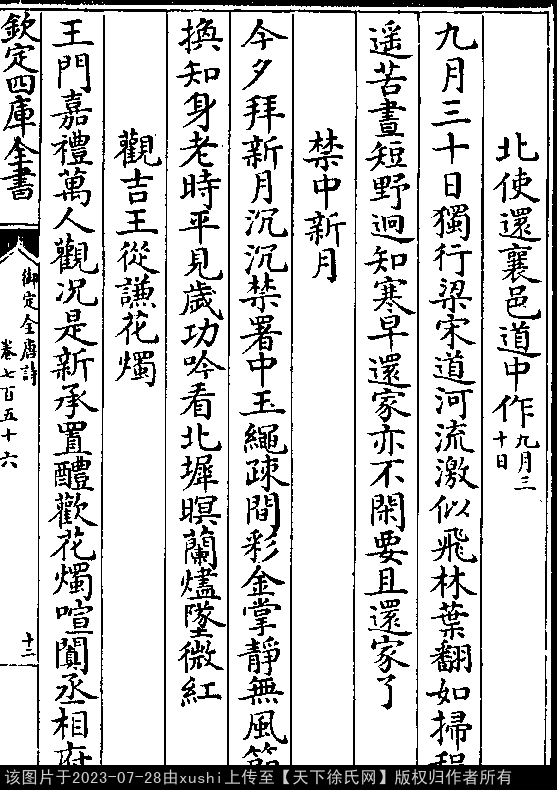 北使還襄邑道中作九月三十日
九月三十日獨行梁宋道河流激似飛林葉翻如掃程
遥苦晝短野迥知寒早還家亦不閑要且還家了
禁中新月
今夕拜新月沉沉禁署中玉繩疎間彩金掌靜無風節
換知身老時平見歲功吟看北墀暝蘭燼墜微紅
觀吉王從謙花燭
王門嘉禮萬人觀况是新承置醴歡花燭喧闐丞相府
欽定四庫全書
御定全唐詩
卷七百五十六
十二
该图片于2023-07-28由xushi上传至【天下徐氏网】版权归作者所有